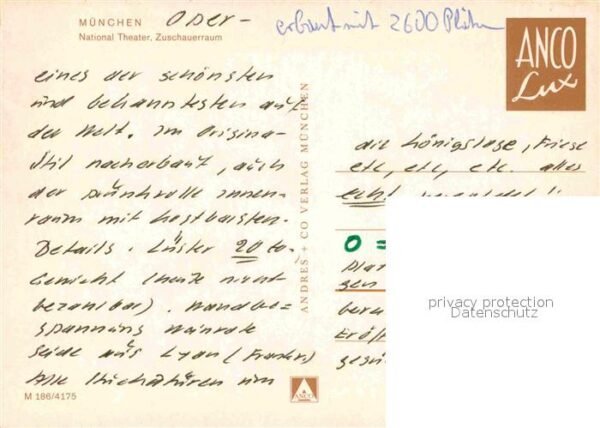 MÜNCHEN Oper-
National Theater, Zuschauerraum
erbaut mit 2600 Plätzen
ANCO
Lux
eines der schönsten
und bekanntesten auf
der Welt. Im Original-
Stil nacherbaut, auch
der prunkvolle Innen-
raum mit kostbarsten
Details. Lüster 20 to.
Gewicht (heute nicht
bezahlbar). Wandbe=
spannung
Seide aus Lyon (Frankr.)
Alle Stuckatüren um
ANDRES + CO VERLAG MÜNCHEN
die Königsloge, Friese
etc, etc, etc. alles
echt
O =
gen
Eröf
M 186/4175
ANCO
privacy protection
Datenschutz